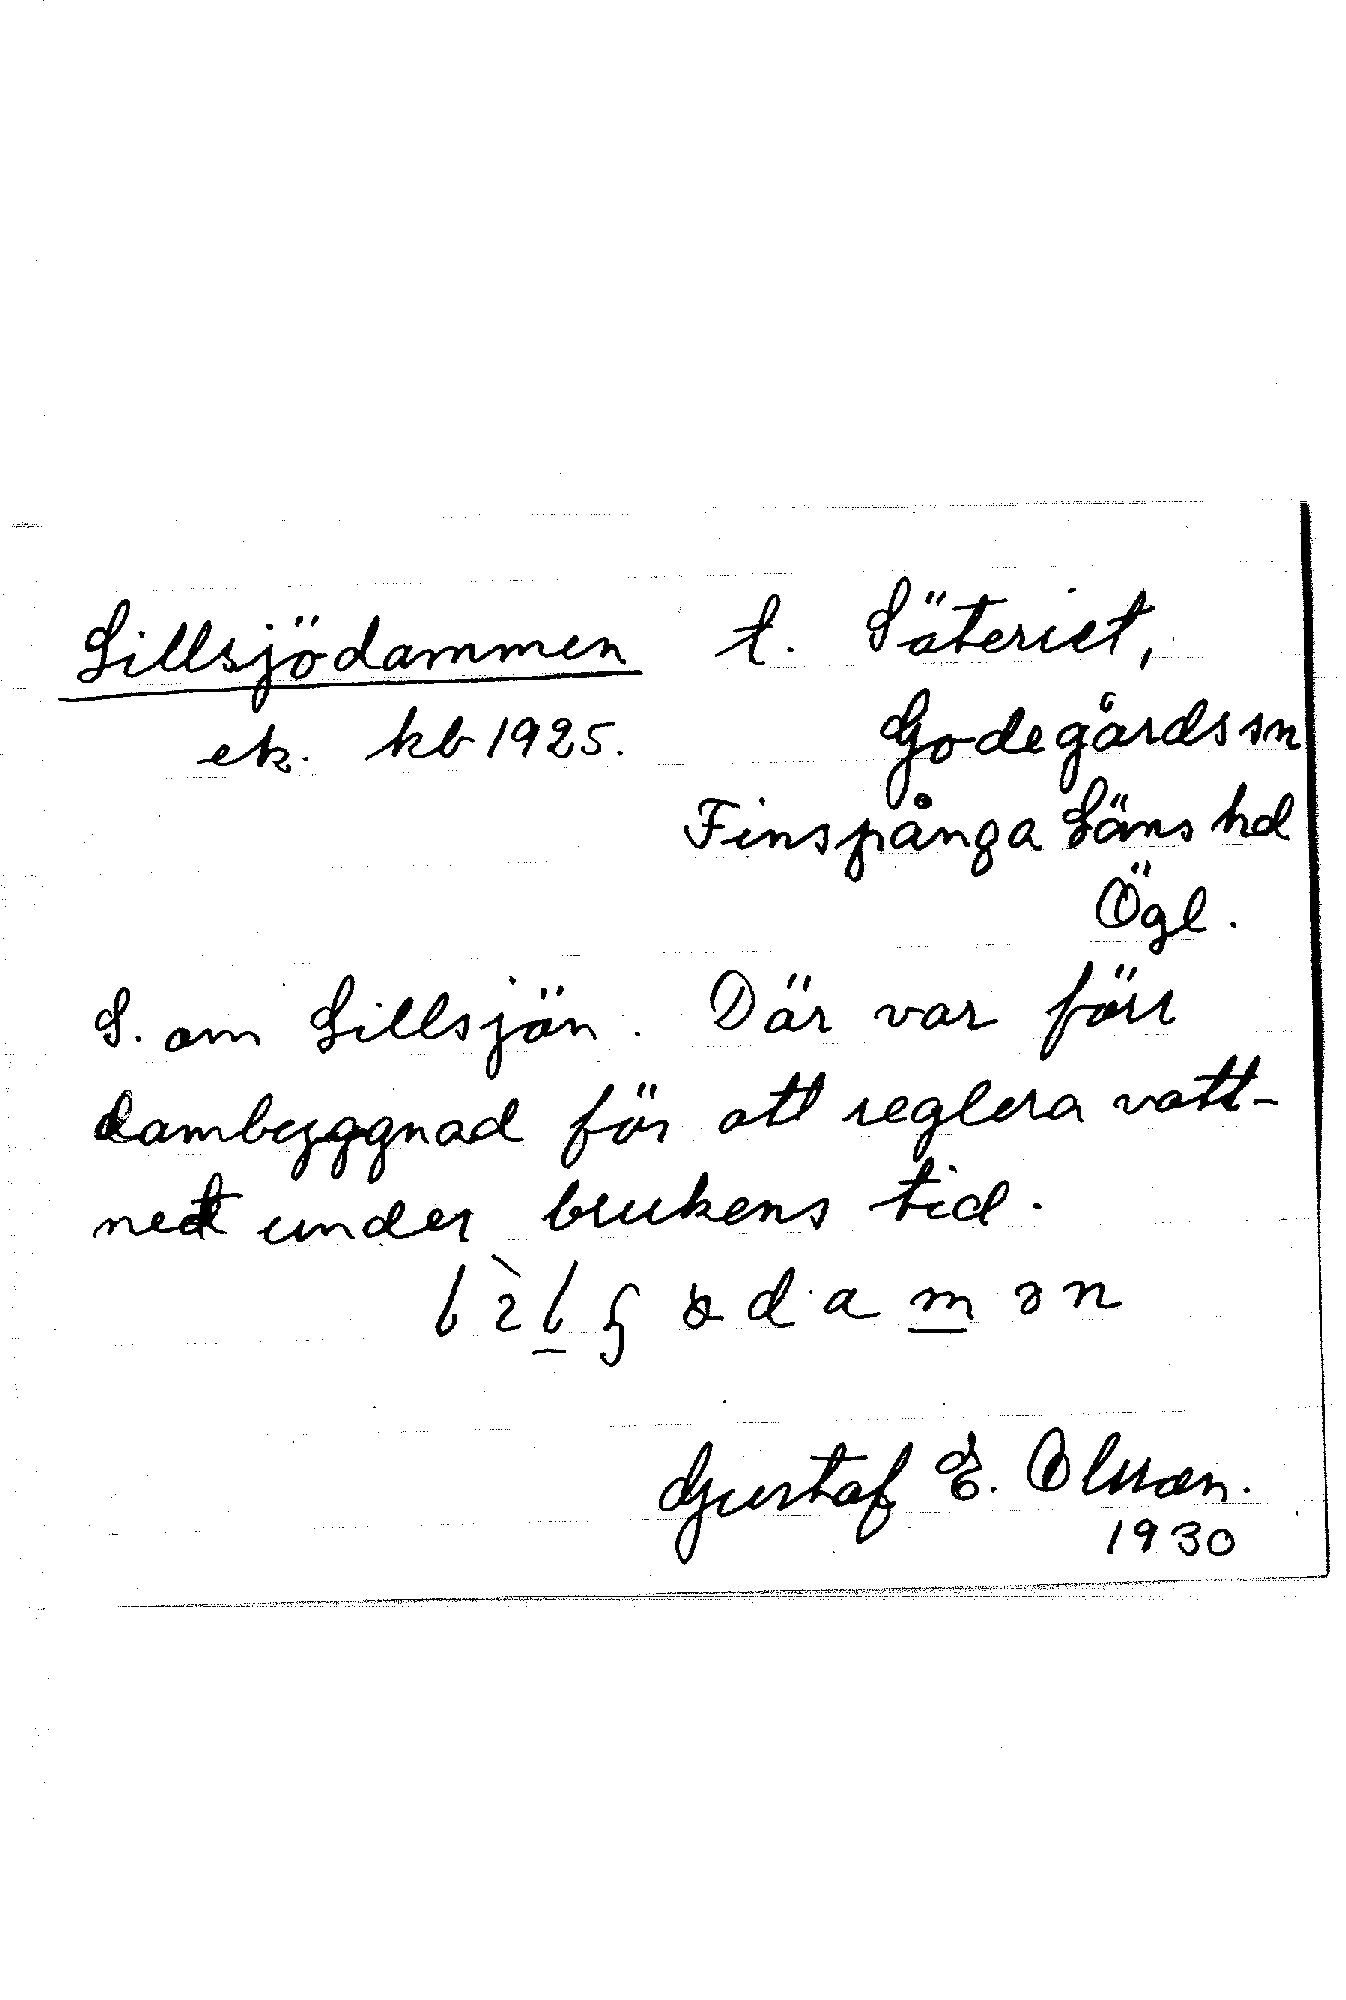 Lillsjödammen t. Säteriet,
ek. kb 1925. Godegårds sn
Finspånga Läns hd
Ögl.
S. om Lillsjön. Där var förr
dambyggnad för att reglera vatt-
net under brukens tid.
Gustaf E. Olsson.
1930